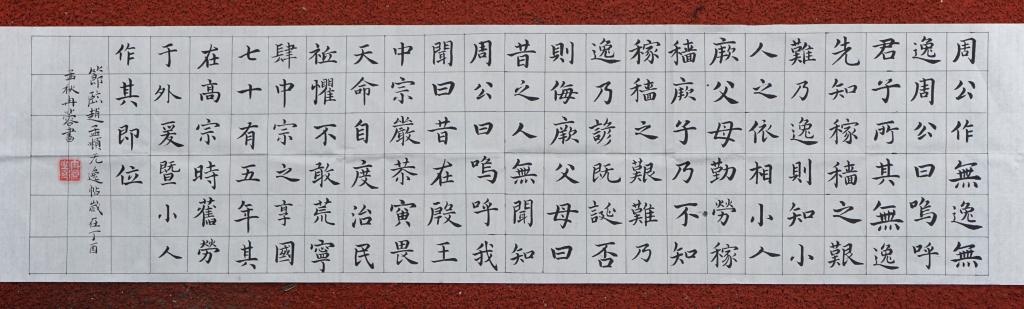 周公作無逸無
逸周公曰嗚呼
君子所其無逸
先知稼穡之艱
難乃逸則知小
人之依相小人
厥父母勤勞稼
穡厥子乃不知
稼穡之艱難乃
逸乃諺既誕否
則侮厥父母曰
昔之人無聞知
周公曰嗚呼我
聞曰昔在殷王
中宗嚴恭寅畏
天命自度治民
祗懼不敢荒寧
肆中宗之享國
七十有五年其
在高宗時舊勞
于外爰暨小人
作其即位
節臨趙孟頫无逸帖歲在丁酉
秋冉蓉書